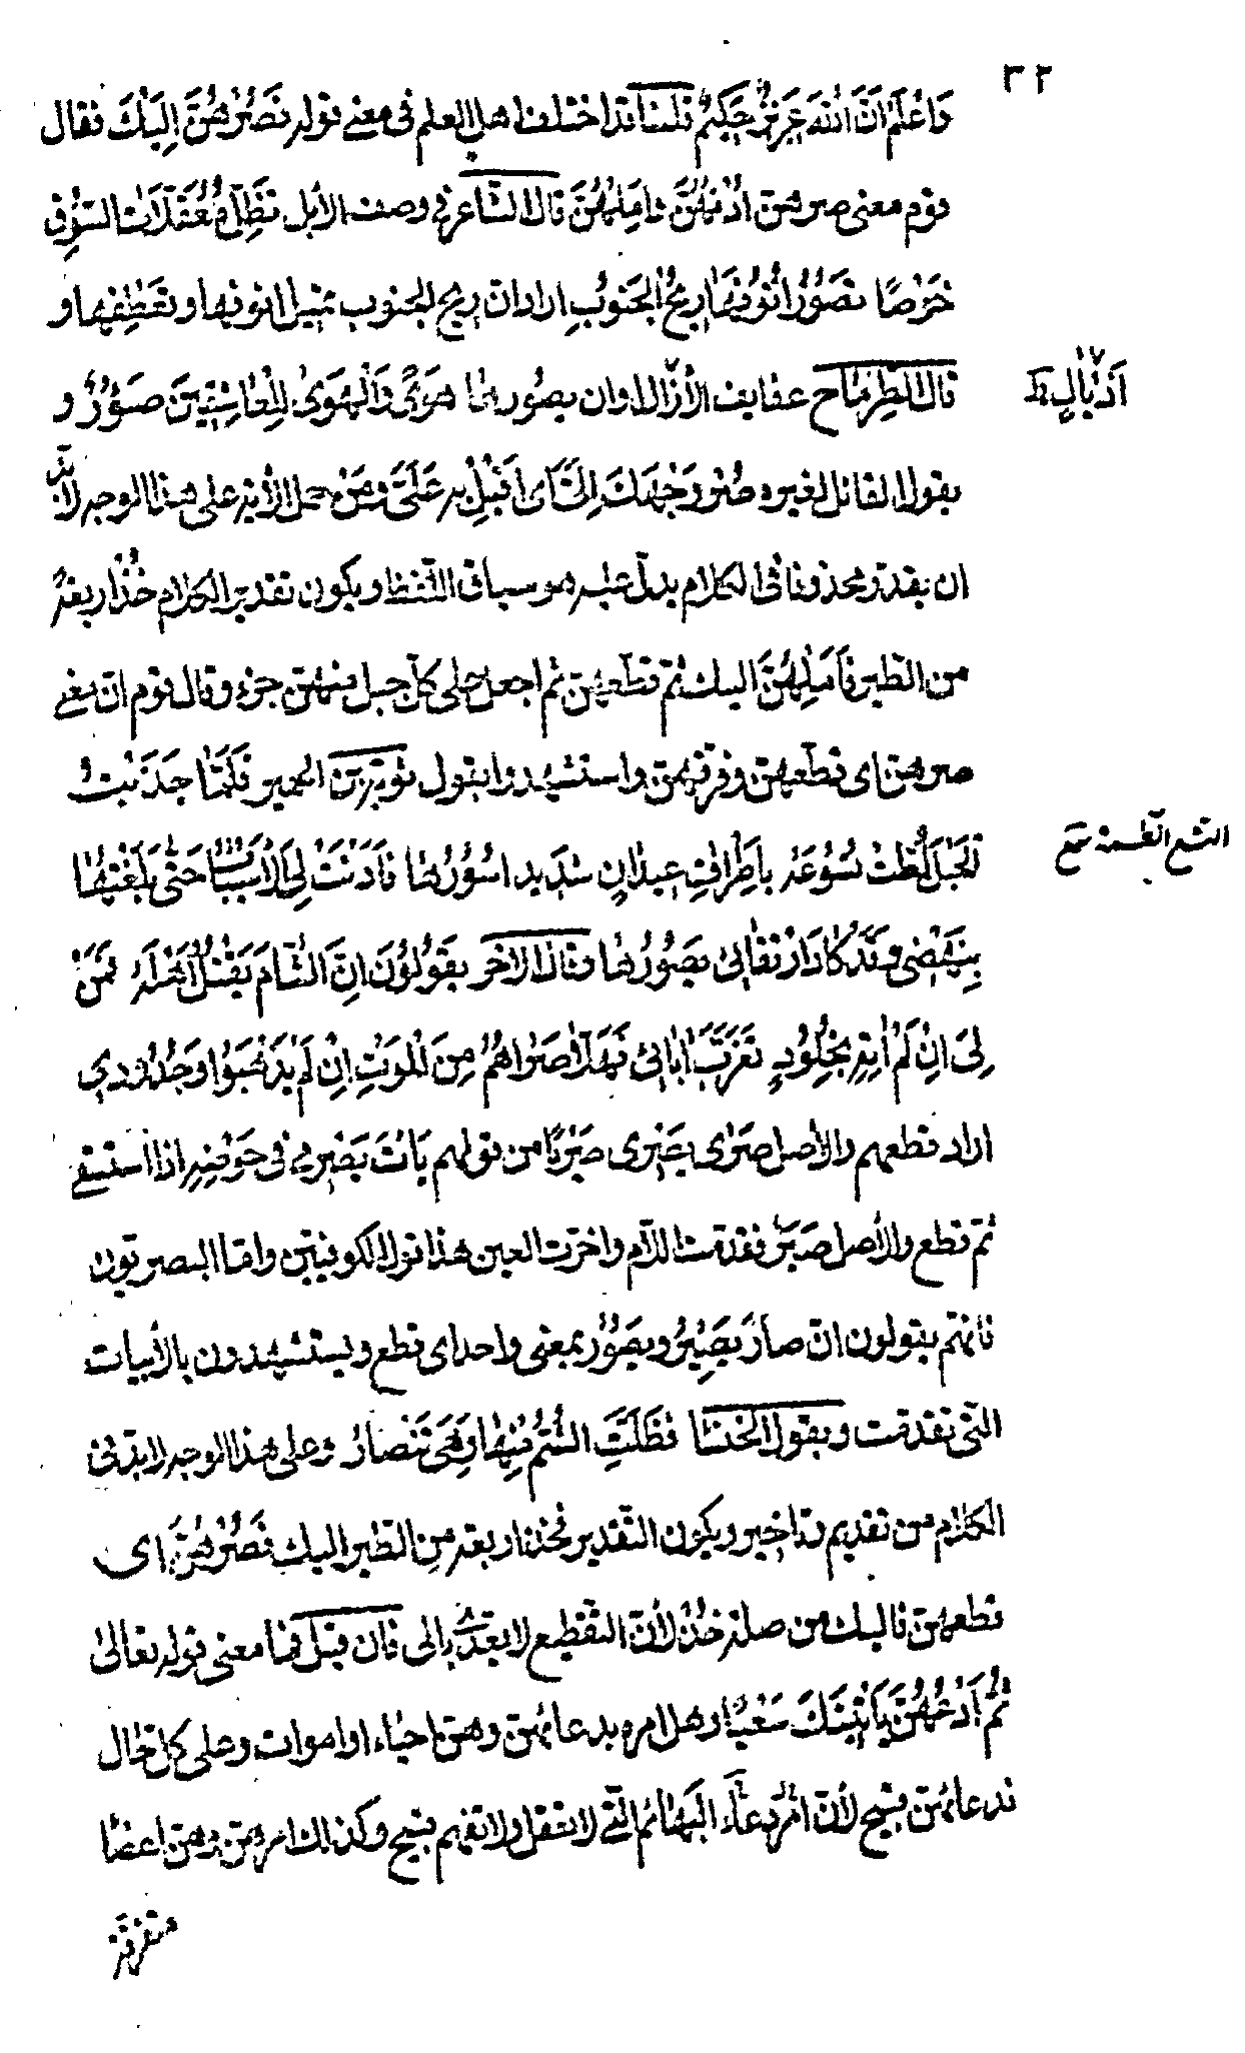 ٣٢
وَاعْلَمْ اَنَّ اللّٰهَ عَزِيزٌ حَكِيمٌ قلنا قد اختلف اهل العلم فى معنى قوله فَصُرْهُنَّ اِلَيْكَ فقال
قوم معنى صرهنّ اَدْنِهُنَّ وَاَمِلْهُنَّ قال الشاعر فى وصف الأبل تَظَلُّ مُعَقَّلَات السّوق
خَرْصًا تَصُوْرُ اُنُوْفَهَا رِيْحُ الجَنُوْبِ اراد ان ريح الجنوب تميل انوفها وتعطفها و
قال الطِرِمَاح عفايف الأزالا او ان يصورها هَوًى وَالْهَوىٰ لِلْعَاشِقِيْنَ صَوُرٌ و
اَذْيٰالٍ ظ
يقول القائل لغيره صُرْ وَجْهَكَ اِلَىَّ اى اَقْبِلْ به عَلَىَّ ومَنْ حمل الأية على هذا الوجه لا بدّ
ان يقدّر محذوفا فى الكلام يدلّ عليه وهو سياق اللّفظ ويكون تقدير الكلام خُذْ اربعةً
من الطّير فَاَمِلْهُنَّ اليك ثمّ قطّعهنّ ثم اجعل على كلّ جبل منهنّ جزء وقال قوم انّ معنى
صرهنّ اى قطّعهنّ وفرّقهنّ واستشهدوا بقول توبة بن الحمير فَلَمَّا جَذَبْتُ
الْحَبْلَ اَطَّتْ نُسُوْعُهُ بِاَطْرافِ عيدانٍ شَدِيد اُسُوْرُهٰا فَاَدْنَتْ لِىَ الأَسْبَابَ حَتّٰى بَلَغْتُهٰا
النسع الطسمة نسع
بِنَهْضٖى وقَدْ كَادَ ارْتِقٰائىٖ يَصُوْرُهٰا وقال الاخر يَقُوْلُوْنَ اِنَّ الشّٰامَ يَقْتُلُ اَهْلَهُ فَمَنْ
لِىَ اِنْ لَمْ اٰتِهِ بِخُلُوْدٍ تَعَرَّبَ اٰبائىٖ فَهَلّٰا صَرٰاهُمُ مِنَ الْمَوْتِ اِنْ لَمْ يَذْهَبُوْا وَجُدُوْدى
اراد قطعهم والأصل صَرٰى يَصْرِى صَرْيًا من قولهم بَاتَ يَصْرِىْ فى حَوْضِهِ اذا استقى
ثمّ قطع والأصل صَرَىَ فقدّمت اللّام واخّرت العين هذا قول الكوفيّين وامّا البصريّون
فانّهم يقولون انّ صارَ يَصِيْرُ ويَصُوْرُ بمعنى واحد اى قطع ويستشهدون بالأبيات
التى تقدّمت وبقول الخنسا فَظَلَّتِ الشُّمُّ مِنْهٰا وَهْىَ تَنْصارُ وعلى هذا الوجه لا بدّ فى
الكلام من تقديم وتاخير ويكون التّقدير فخذ اربعة من الطّير اليك فَصُرْهُنَّ اى
قطعهنّ فاليك من صلة خُذْ لأنّ التّقطيع لا يعدّى بالى فان قيل فما معنى قوله تعالىٰ
ثُمَّ ادْعُهُنَّ يَاْتِيْنَكَ سَعْيًا وهل امره بدعائهنّ وهنّ احيٰاء او اموات وعلى كل حٰال
فدعائهنّ قبيح لأنّ امْرَ دعآء البَهائم الّتى لا تعقل ولا تفهم قبيح وكذلك امرهنّ وهنّ اعضٰا
متفرّقة